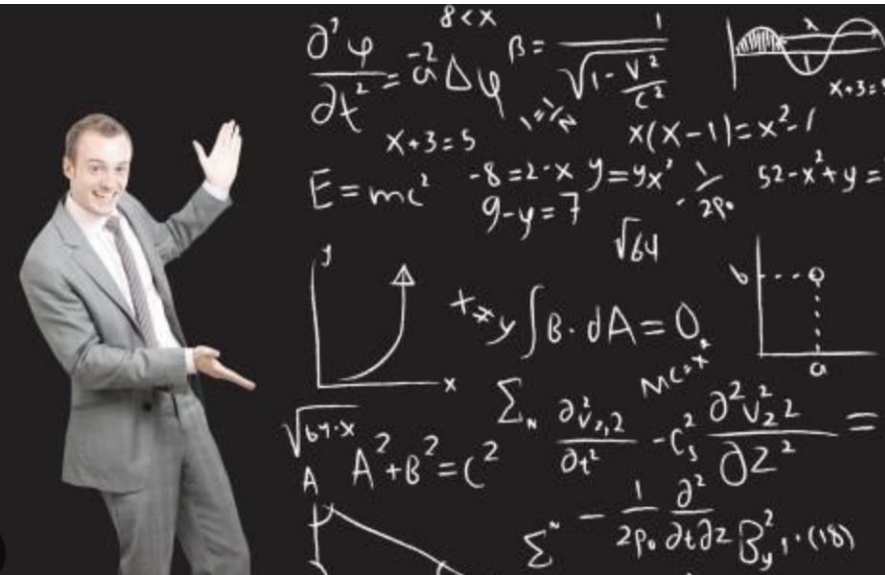 8<x
∂²φ/∂t² = a⁻²Δφ
β = 1/√(1-v²/c²)
λ
1=1/N
x+3=5
x+3=5
x(x-1)=x²-1
E=mc²
-8=2-x
y=yx²
-1/2p₀
52-x²+y=
9-y=7
√64
y
x
b
a
x≠y
∫B·dA=0
MC=x²
√64·x
A²+B²=C²
Σₙ ∂²v₂,2/∂t² - C²ₛ ∂²v²₂2/∂z² =
A
Σⁿ - 1/2p₀ ∂²/∂t∂z B²y,·(18)